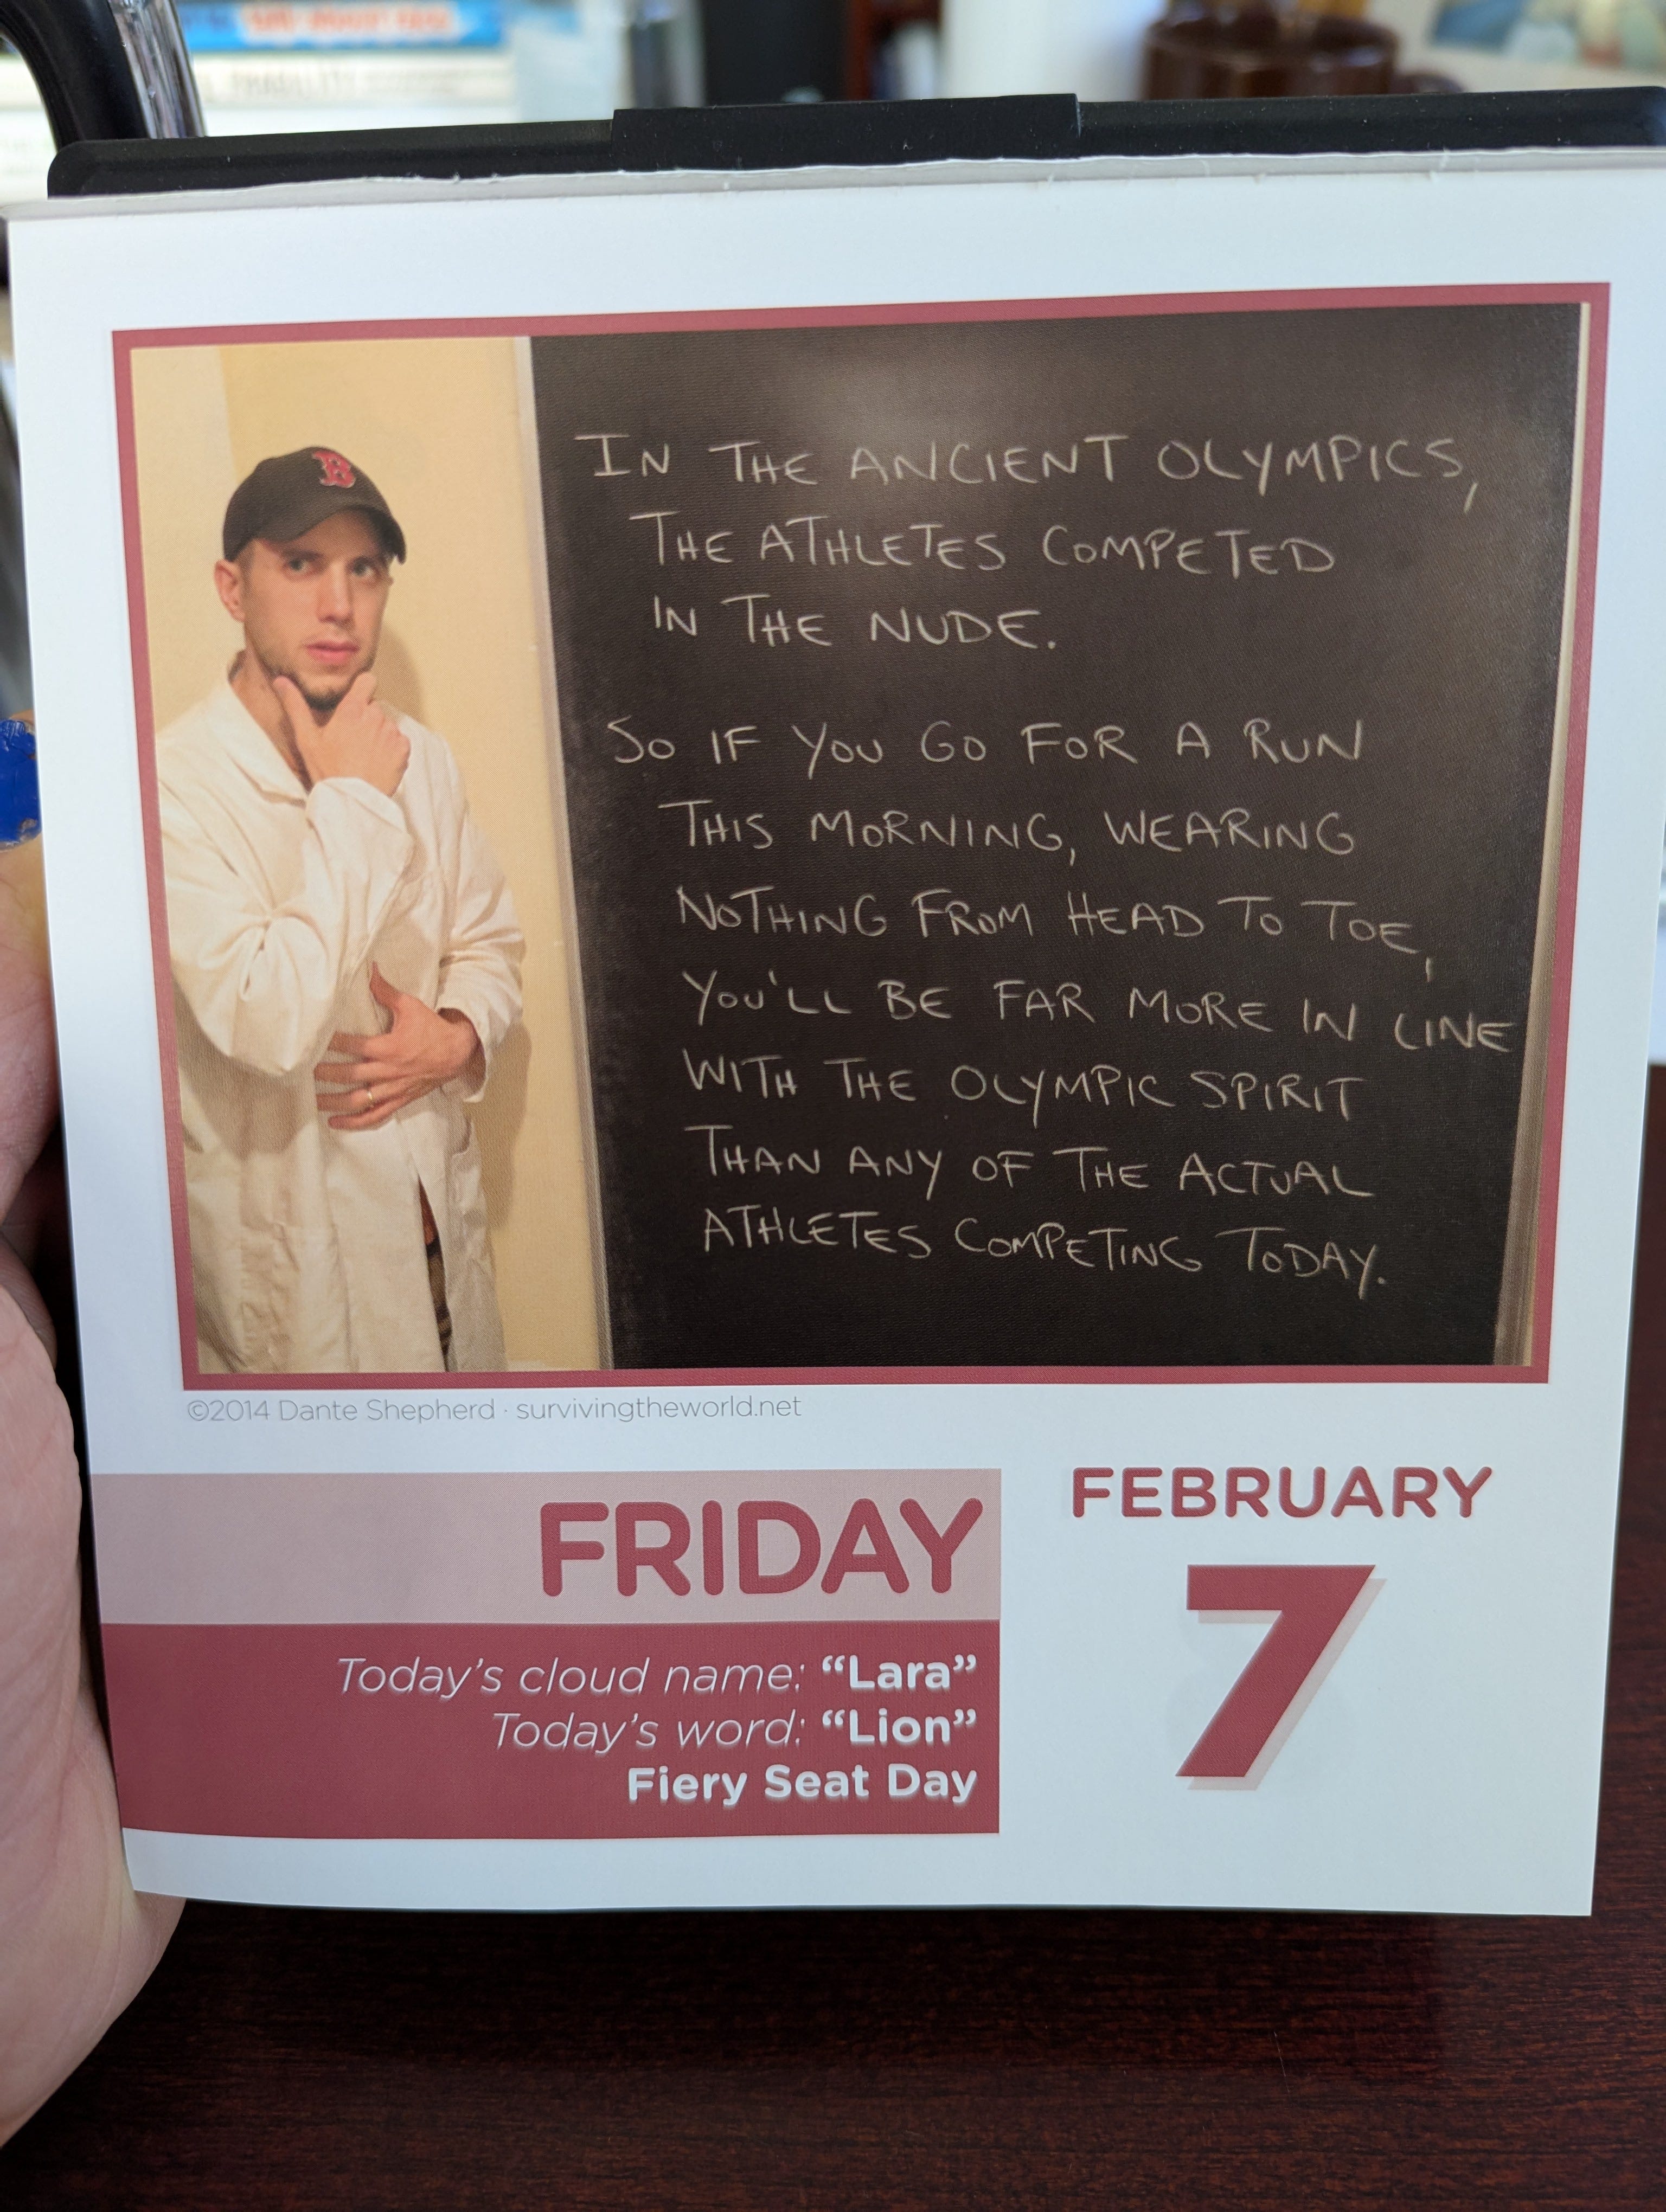 B
IN THE ANCIENT OLYMPICS,
THE ATHLETES COMPETED
IN THE NUDE.
SO IF YOU GO FOR A RUN
THIS MORNING, WEARING
NOTHING FROM HEAD TO TOE,
YOU'LL BE FAR MORE IN LINE
WITH THE OLYMPIC SPIRIT
THAN ANY OF THE ACTUAL
ATHLETES COMPETING TODAY.
©2014 Dante Shepherd · survivingtheworld.net
FRIDAY
FEBRUARY
7
Today's cloud name: “Lara”
Today's word: “Lion”
Fiery Seat Day